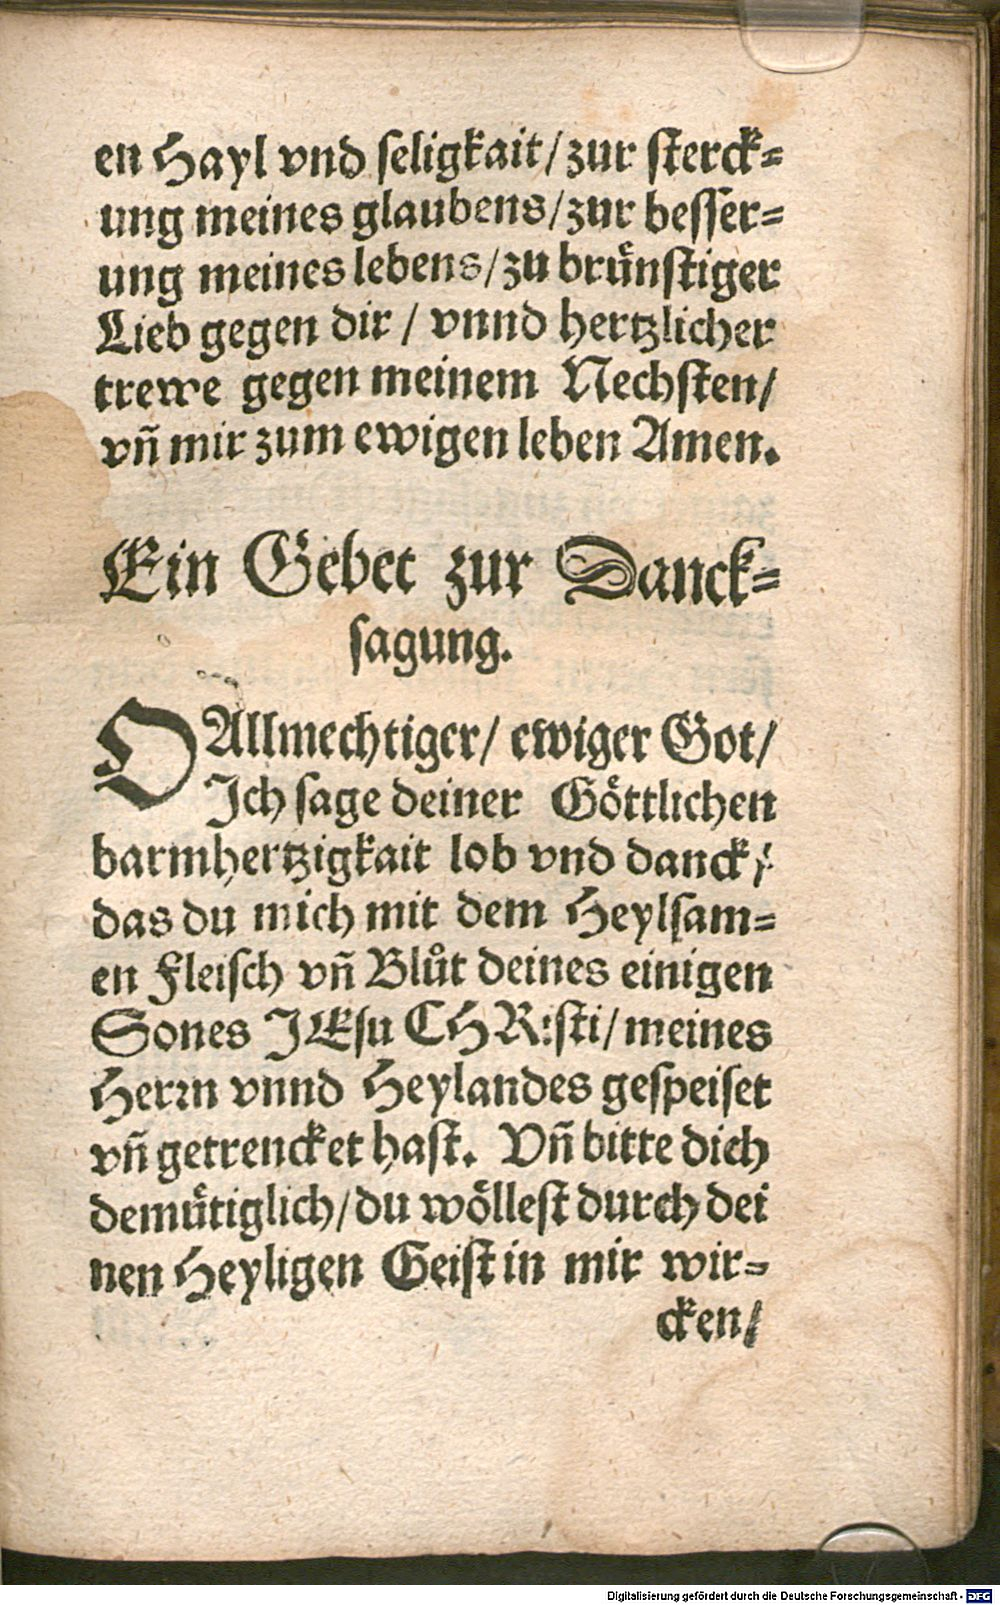 en Hayl vnd seligkait/zur sterck=
ung meines glaubens/zur besser=
ung meines lebens/zu brünstiger
Lieb gegen dir / vnnd hertzlicher
trewe gegen meinem Nechsten/
vñ mir zum ewigen leben Amen.
Ein Gebet zur Danck=
sagung.
O Allmechtiger/ ewiger Got/
Ich sage deiner Göttlichen
barmhertzigkait lob vnd danck/
das du mich mit dem Heylsam=
en Fleisch vñ Blůt deines einigen
Sones JEsu CHRisti/meines
Herrn vnnd Heylandes gespeiset
vñ getrencket hast. Vñ bitte dich
demütiglich/du wöllest durch dei
nen Heyligen Geist in mir wir=
cken/
Digitalisierung gefördert durch die Deutsche Forschungsgemeinschaft - DFG